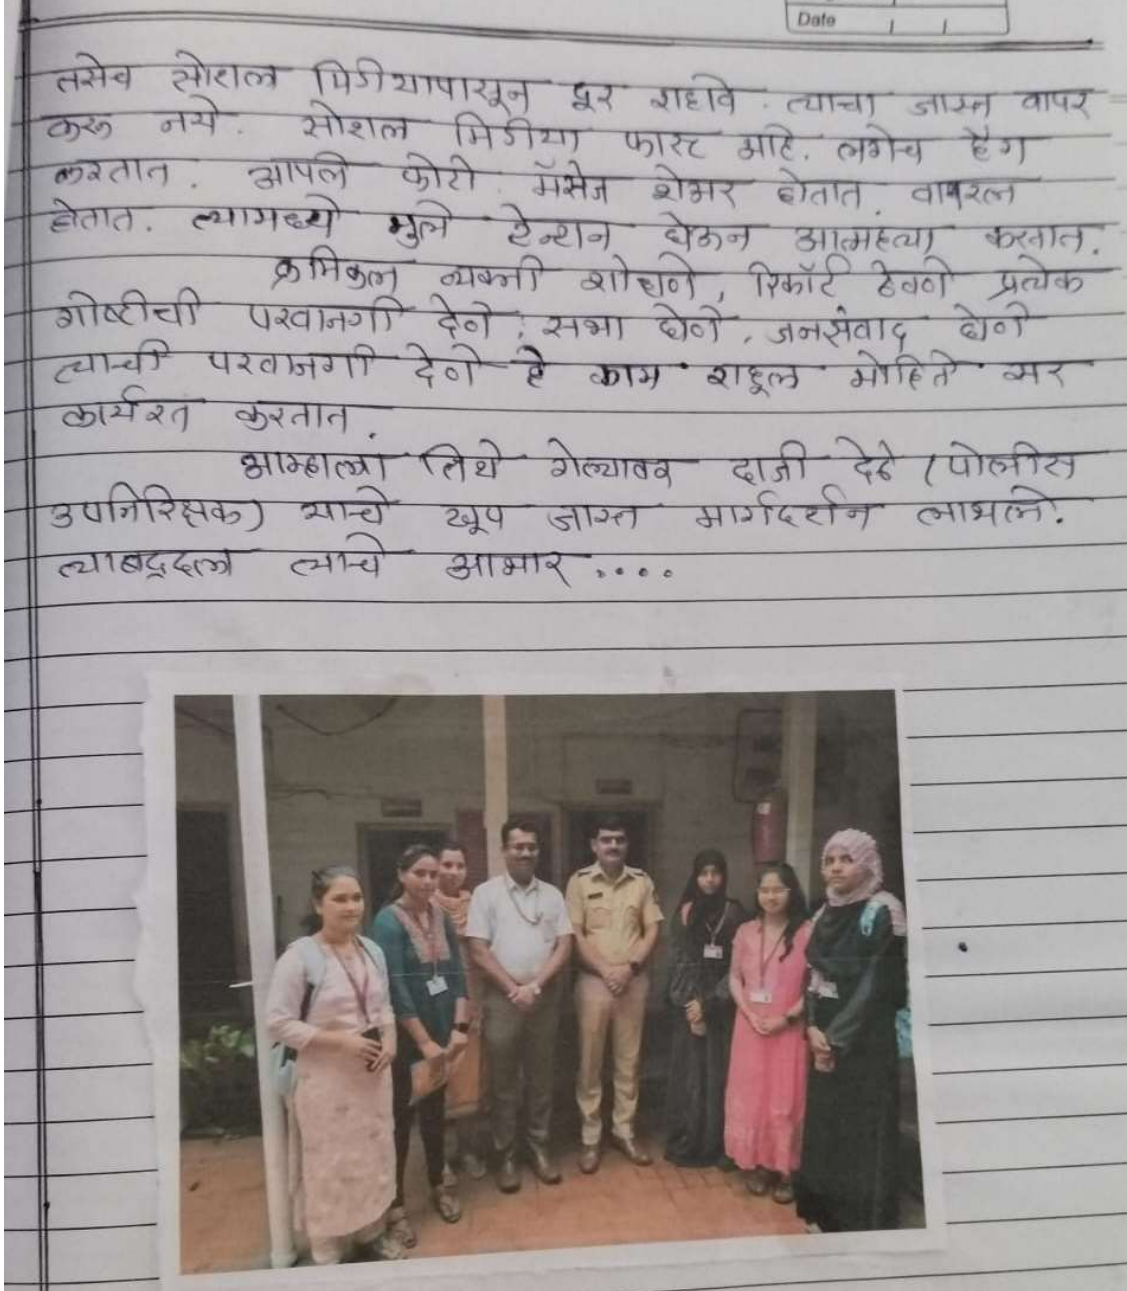 Date
तसेच सोशल मिडीयापासून दूर राहावे. त्याचा जास्त वापर
करू नये. सोशल मिडीया फास्ट आहे. लगेच हॅग
करतात. आपले फोटो. मॅसेज शेअर होतात. वायरल
होतात. त्यामध्ये मुले टेन्शन घेऊन आत्महत्या करतात.
क्रमिकुल व्यक्ती शोधणे, रिकॉर्ट ठेवणे प्रत्येक
गोष्टीची परवानगी देणे, सभा घेणे, जनसंवाद घेणे
त्याची परवानगी देणे हे काम राहूल मोहिते सर
कार्यरत करतात.
आम्हाला तिथे गेल्यावर दाजी देठे (पोलीस
उपनिरिक्षक) याचे खूप जास्त मार्गदर्शन लाभले.
त्याबद्दल त्याचे आभार ....